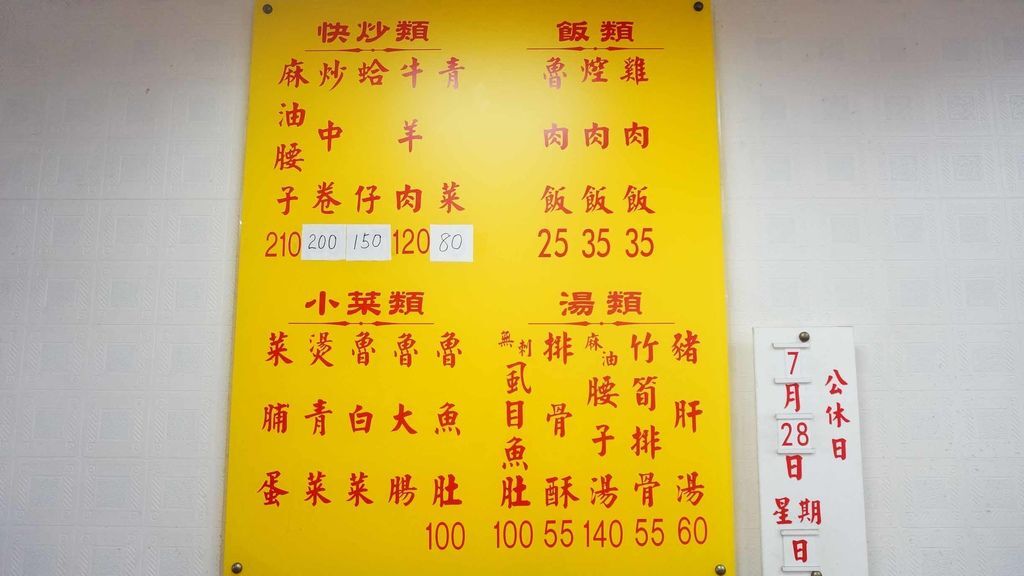 飯類
雞肉飯 35
焢肉飯 35
魯肉飯 25
快炒類
青菜 80
牛羊肉 120
蛤仔 150
炒中卷 200
麻油腰子 210
湯類
豬肝湯 60
竹筍排骨 55
麻油腰子湯 140
排骨酥 55
無刺虱目魚肚 100
小菜類
魯魚肚 100
魯大腸
魯白菜
燙青菜
菜脯蛋
公休日
7月28日星期日